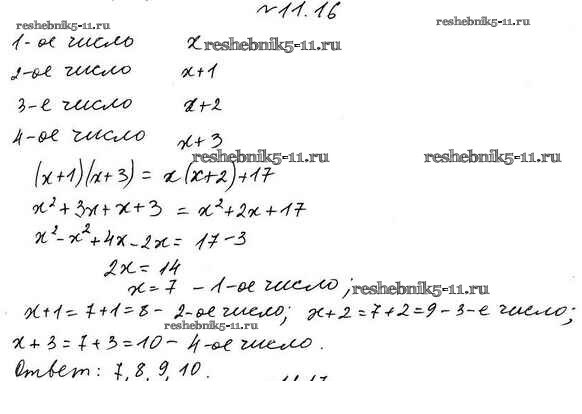 №11.16
reshebnik5-11.ru reshebnik5-11.ru
1-ое число x reshebnik5-11.ru
2-ое число x+1
3-е число x+2
4-ое число x+3
reshebnik5-11.ru reshebnik5-11.ru
(x+1)(x+3) = x(x+2)+17
x²+3x+x+3 = x²+2x+17
x²-x²+4x-2x = 17-3
2x = 14
x = 7 - 1-ое число; reshebnik5-11.ru
x+1=7+1=8 - 2-ое число; x+2=7+2=9-3-е число;
reshebnik5-11.ru
x+3=7+3=10 - 4-ое число.
Ответ: 7, 8, 9, 10.